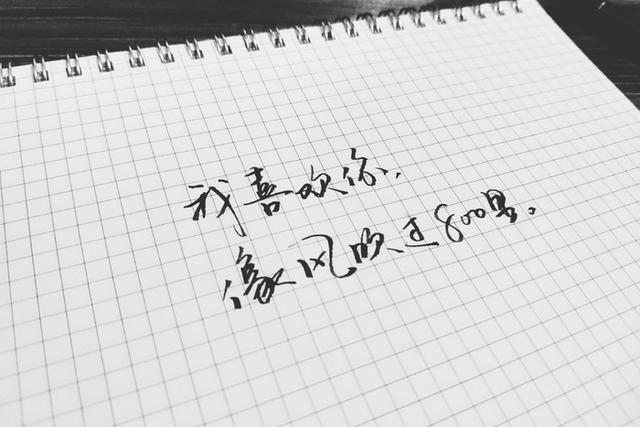 我喜欢你,
像风吹过800里。